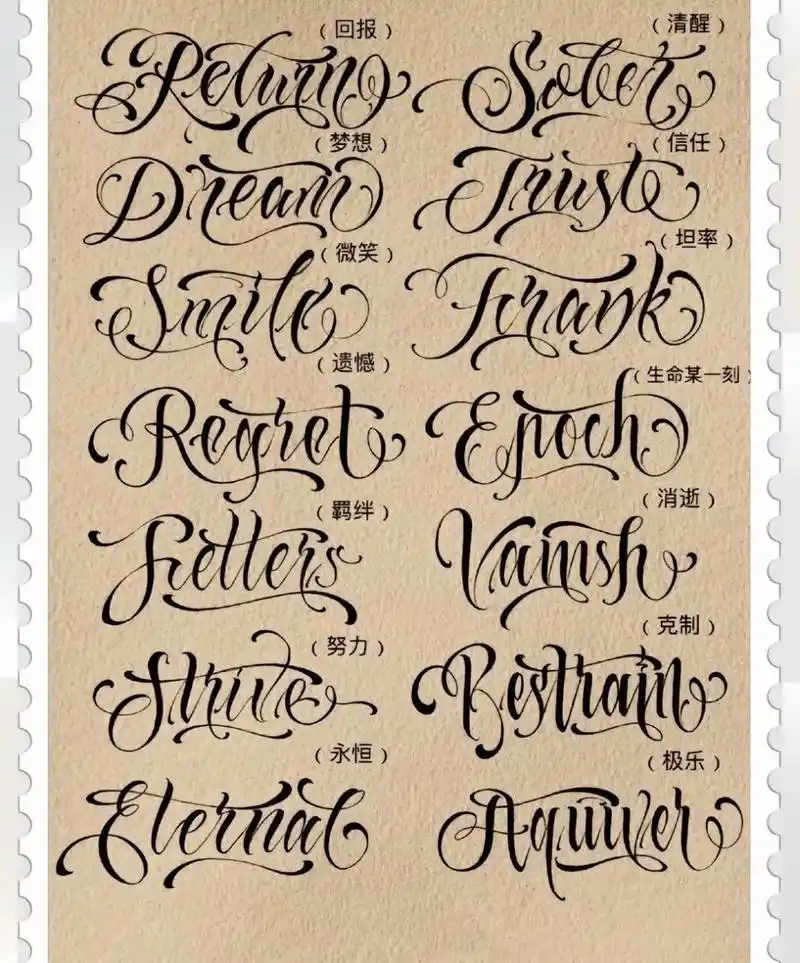 （回报）
Return
（清醒）
Sober
（梦想）
Dream
（信任）
Trust
（微笑）
Smile
（坦率）
Frank
（遗憾）
Regret
（生命某一刻）
Epoch
（羁绊）
Fetters
（消逝）
Vamsh
（努力）
Strive
（克制）
Bestrain
（永恒）
Eternal
（极乐）
Aquiver